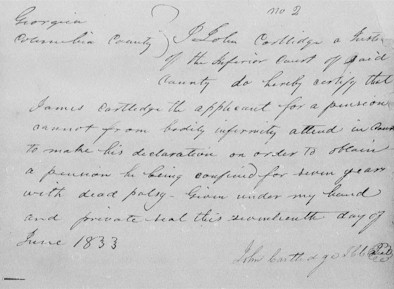 no 2
Georgia
Columbia County) I John Cartledge a Justice
of the Inferior Court of said
County do hereby certify that
James Cartledge the applicant for a pension
cannot from bodily infirmity attend in Court
to make his declaration on order to obtain
a pension he being confined for seven years
with dead palsy - Given under my hand
and private seal this seventeenth day of
June 1833
John Cartledge